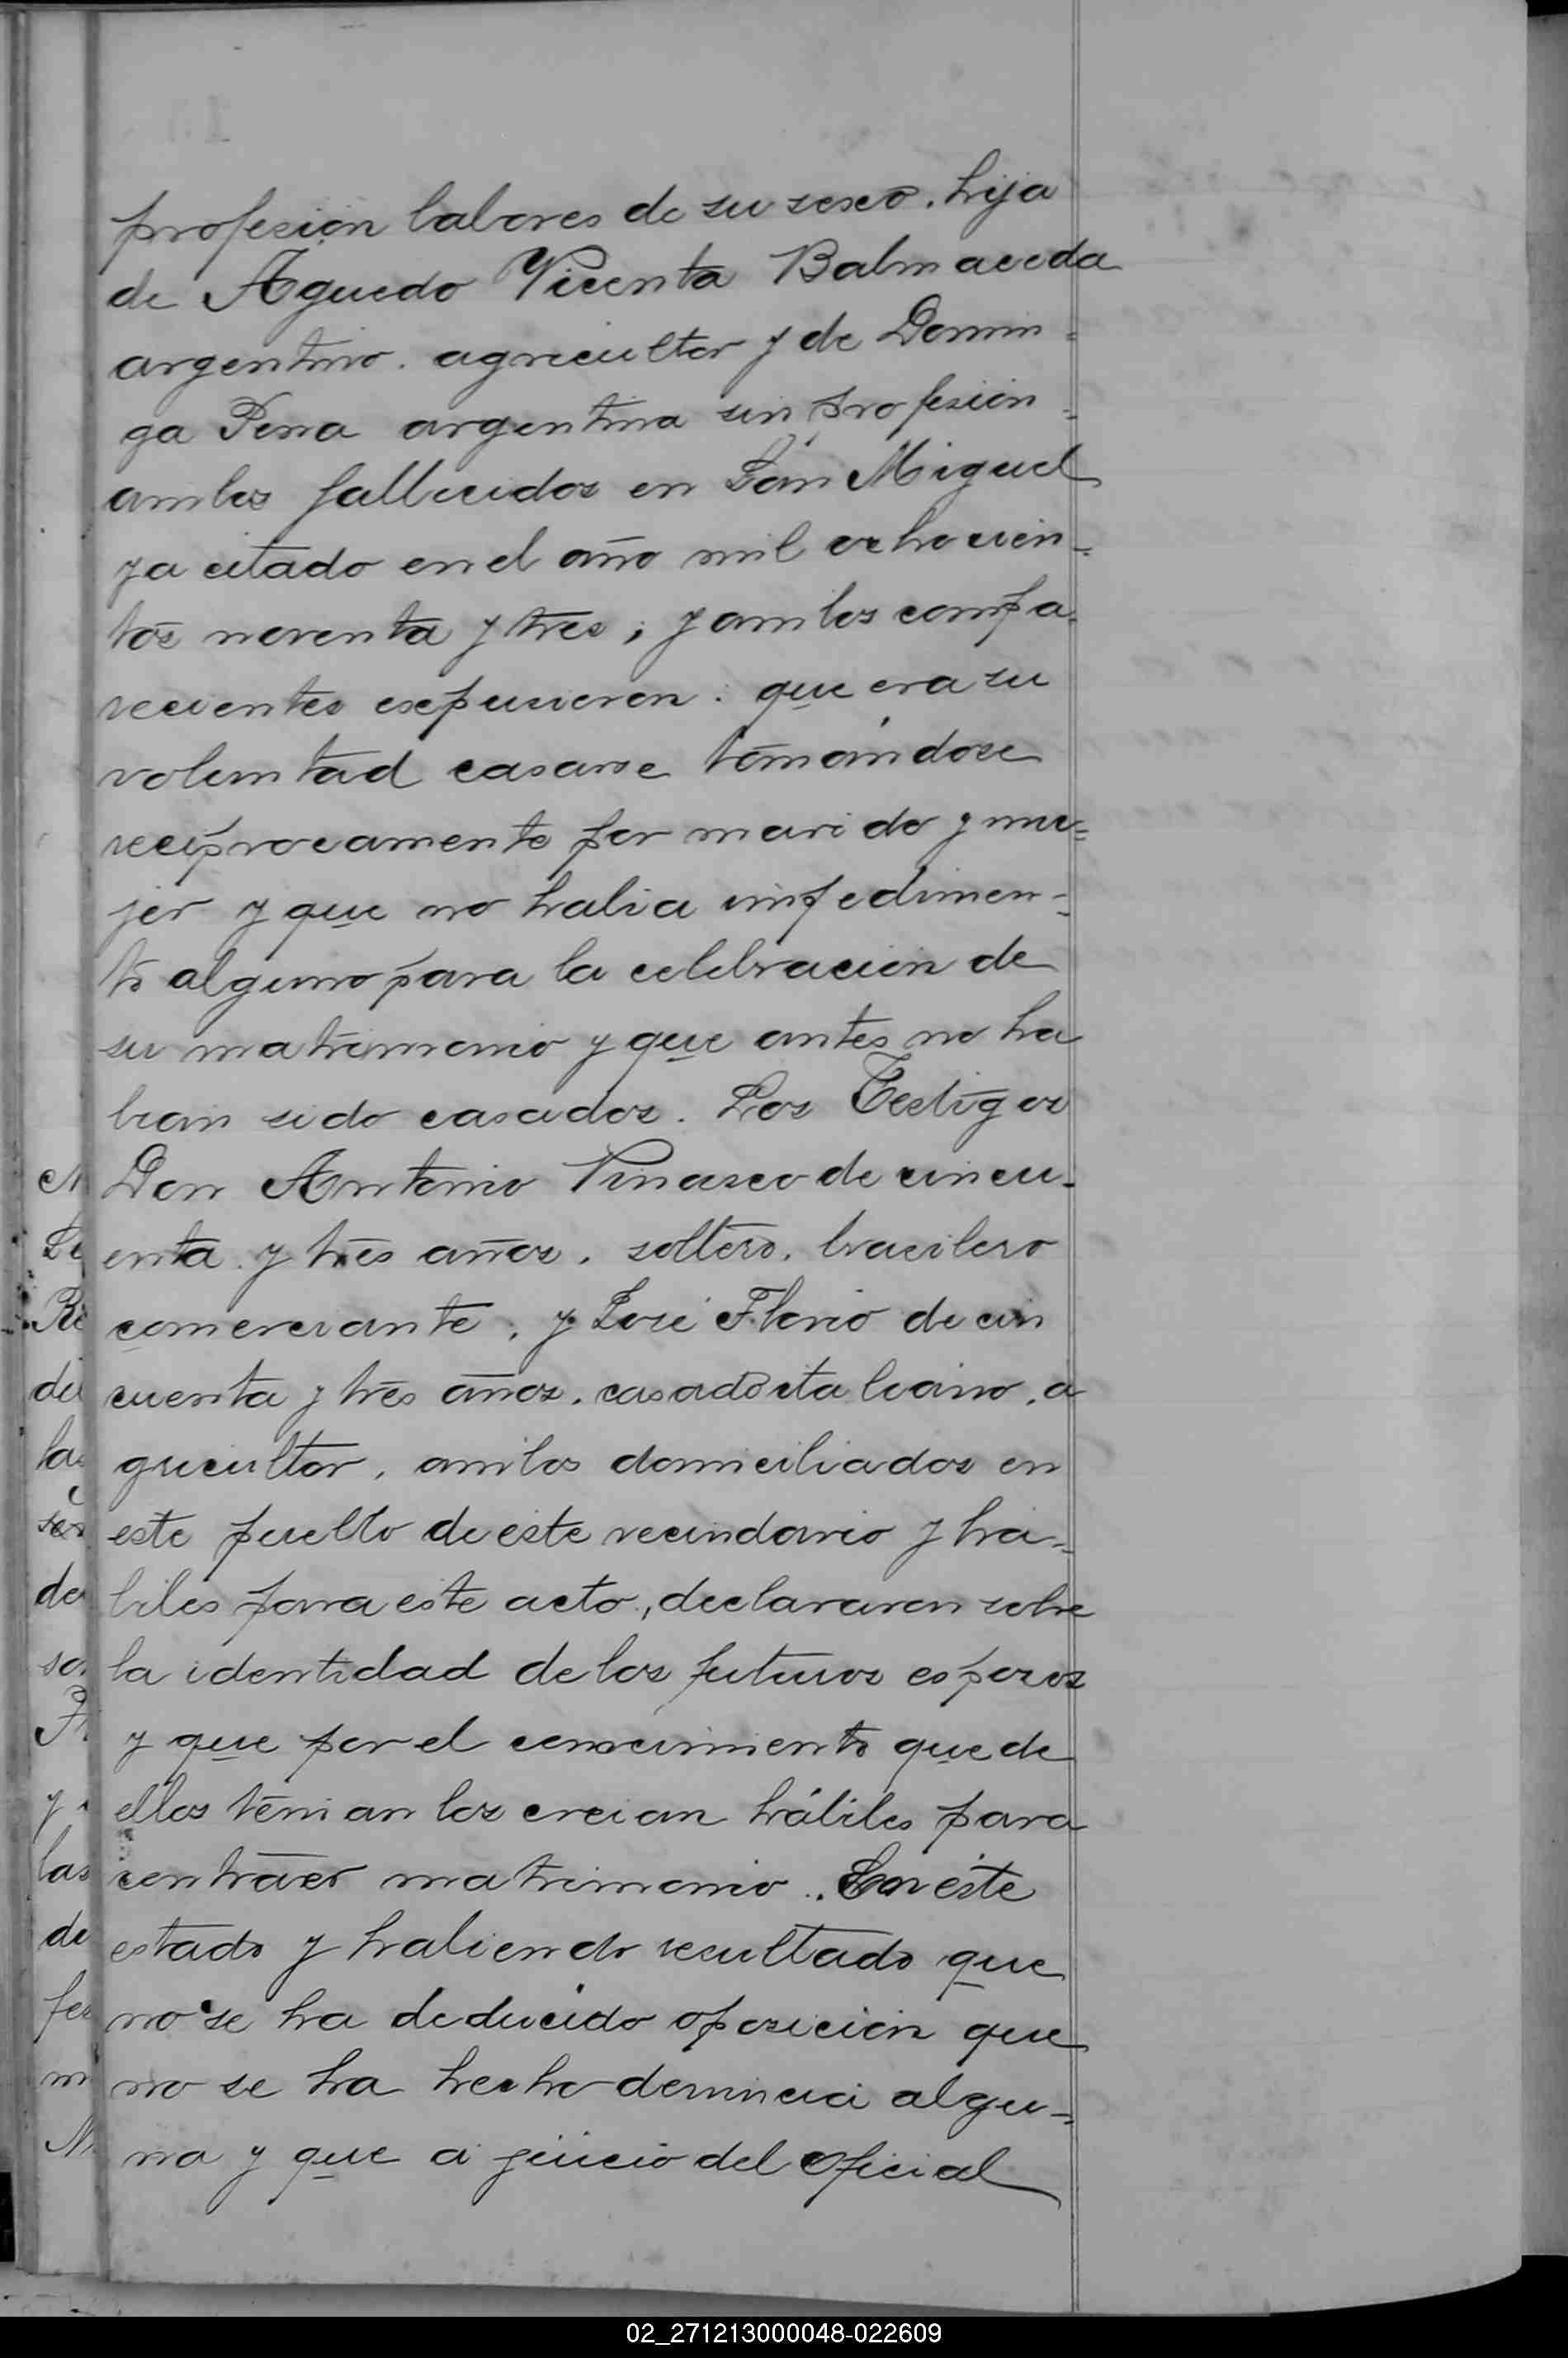 profesión labores de su sexo. hija
de Aguedo Vicenta Balmaceda
argentino. agricultor y de Domin=
ga Pena argentina sin profesión=
ambos fallecidos en San Miguel
ya citado en el año mil ochocien=
tos noventa y tres; y ambos compa=
recientes expusieron: que era su
voluntad casarse tomándose
recíprocamente por marido y mu=
jer y que no habia impedimen=
to alguno para la celebración de
su matrimonio y que antes no ha
bian sido casados. Los Testigos
Don Antonio Vinasco de cincu=
enta y tres años. soltero. brasilero
comerciante. y José Florio de cin
cuenta y tres años. casado italiano. a
gricultor. ambos domiciliados en
este pueblo de este vecindario y ha=
biles para este acto, declararon sobre
la identidad de los futuros esposos
y que por el conocimiento que de
ellos tenian los creian hábiles para
contraer matrimonio. En este
estado y habiendo resultado que
no se ha deducido oposición que
no se ha hecho denuncia algu=
na y que a juicio del oficial
02_271213000048-022609